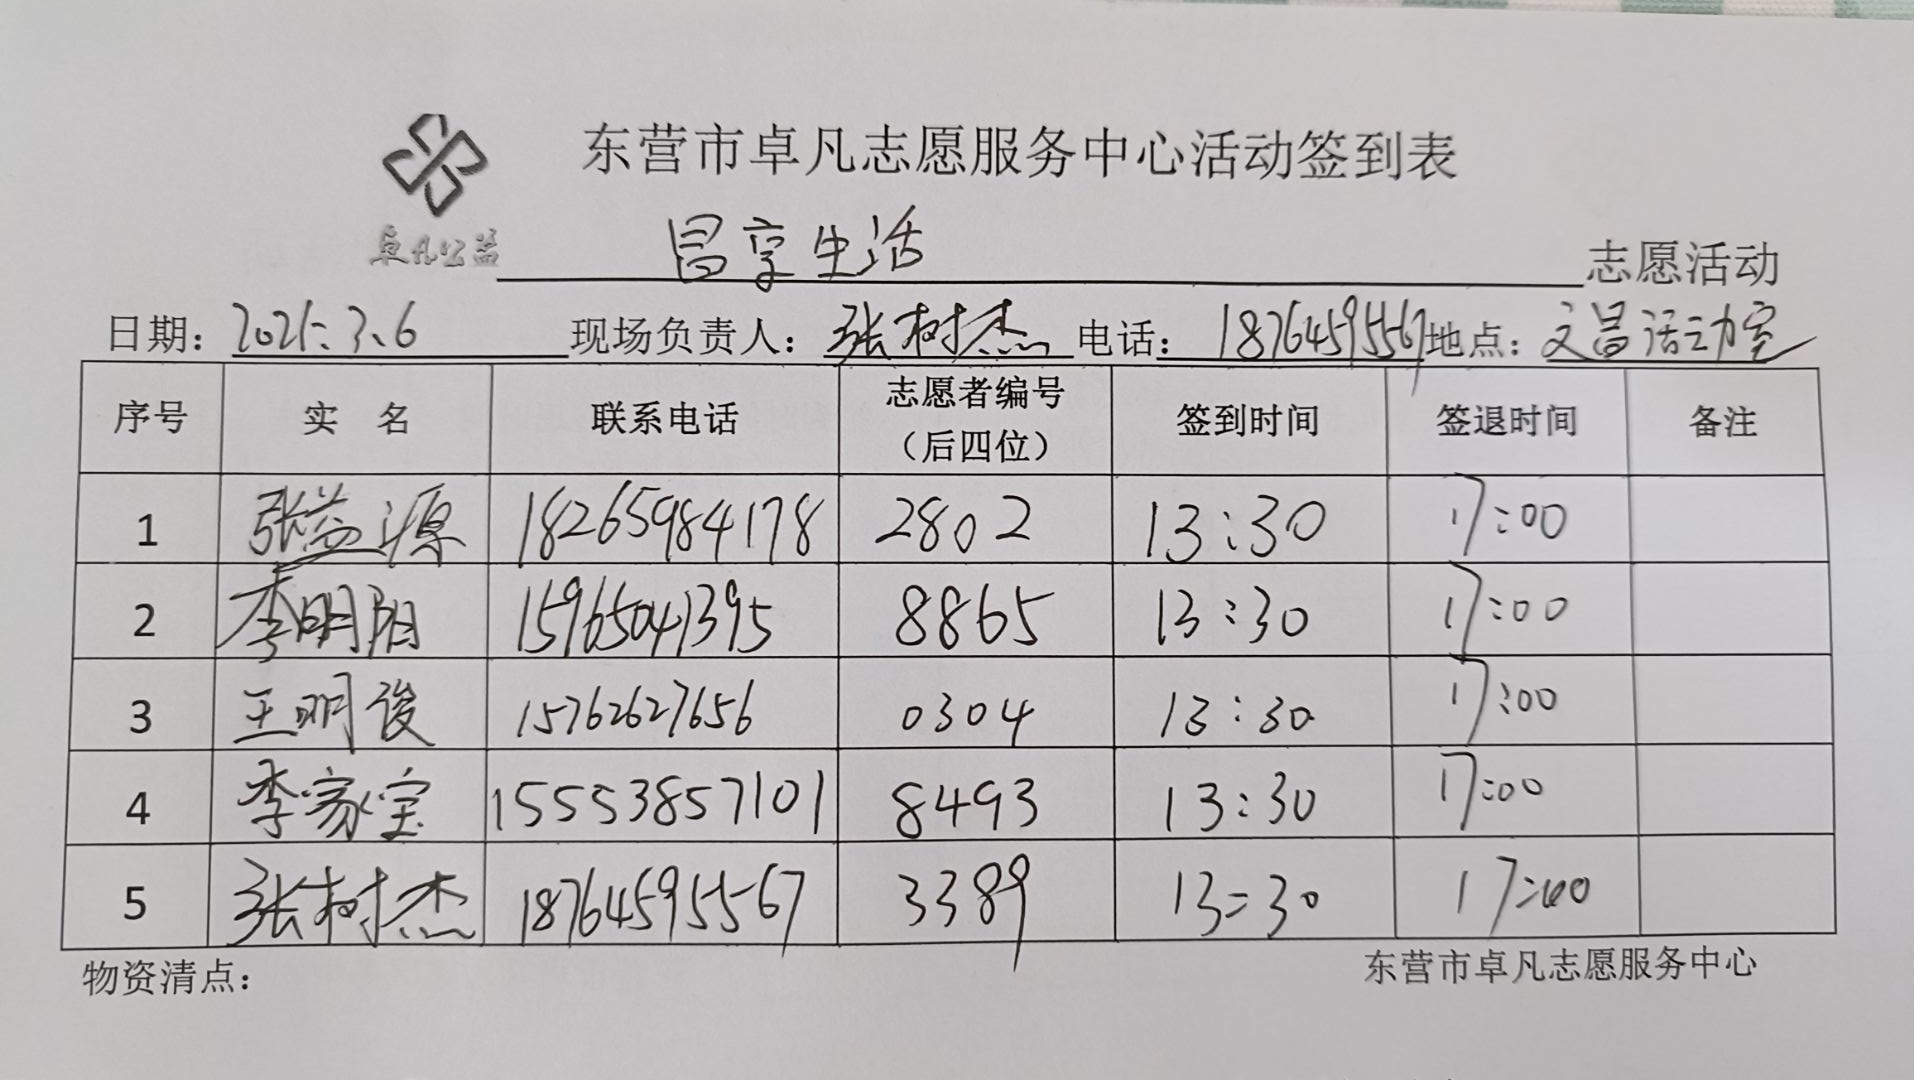 东营市卓凡志愿服务中心活动签到表
卓凡公益
昌享生活 志愿活动
日期：2025.3.6 现场负责人：张树杰 电话：18764595567 地点：文昌活动室
序号 实 名 联系电话 志愿者编号（后四位） 签到时间 签退时间 备注
1 张益源 18265984178 2802 13:30 17:00
2 李明阳 15965041395 8865 13:30 17:00
3 王明俊 15762627656 0304 13:30 17:00
4 李家宝 15553857101 8493 13:30 17:00
5 张树杰 18764595567 3389 13:30 17:00
物资清点： 东营市卓凡志愿服务中心